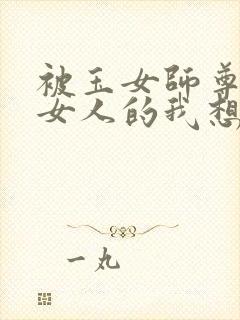 被玉女師尊
女人的我想
一丸